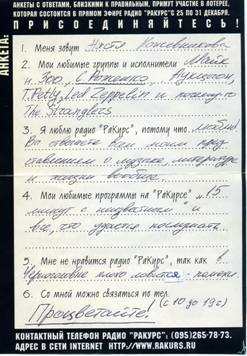 АНКЕТЫ С ОТВЕТАМИ, БЛИЗКИМИ К ПРАВИЛЬНЫМ, ПРИМУТ УЧАСТИЕ В ЛОТЕРЕЕ,
КОТОРАЯ СОСТОИТСЯ В ПРЯМОМ ЭФИРЕ РАДИО "РАКУРС" С 25 ПО 31 ДЕКАБРЯ.
ПРИСОЕДИНЯЙТЕСЬ!
АНКЕТА:
1. Меня зовут Настя
2. Мои любимые группы и исполнители Майк
и Зоо, С. Рыженко, Аукцыон,
T. Petty, Led Zeppelin и
The Stranglers
3. Я люблю радио "РаКурс", потому что люблю!
Вы отвечаете всем моим пред
ставлениям о музыке, литературе
и жизни вообще
4. Мои любимые программы на "РаКурсе" "15
минут с" и
все, что удается послушать
5. Мне не нравится радио "РаКурс", так как в
Черноголовке плохо ловится
6. Со мной можно связаться по тел.
(с 10 до 19 ч)
Процветайте!
КОНТАКТНЫЙ ТЕЛЕФОН РАДИО "РАКУРС": (095)265-78-73.
АДРЕС В СЕТИ INTERNET HTTP://WWW.RAKURS.RU